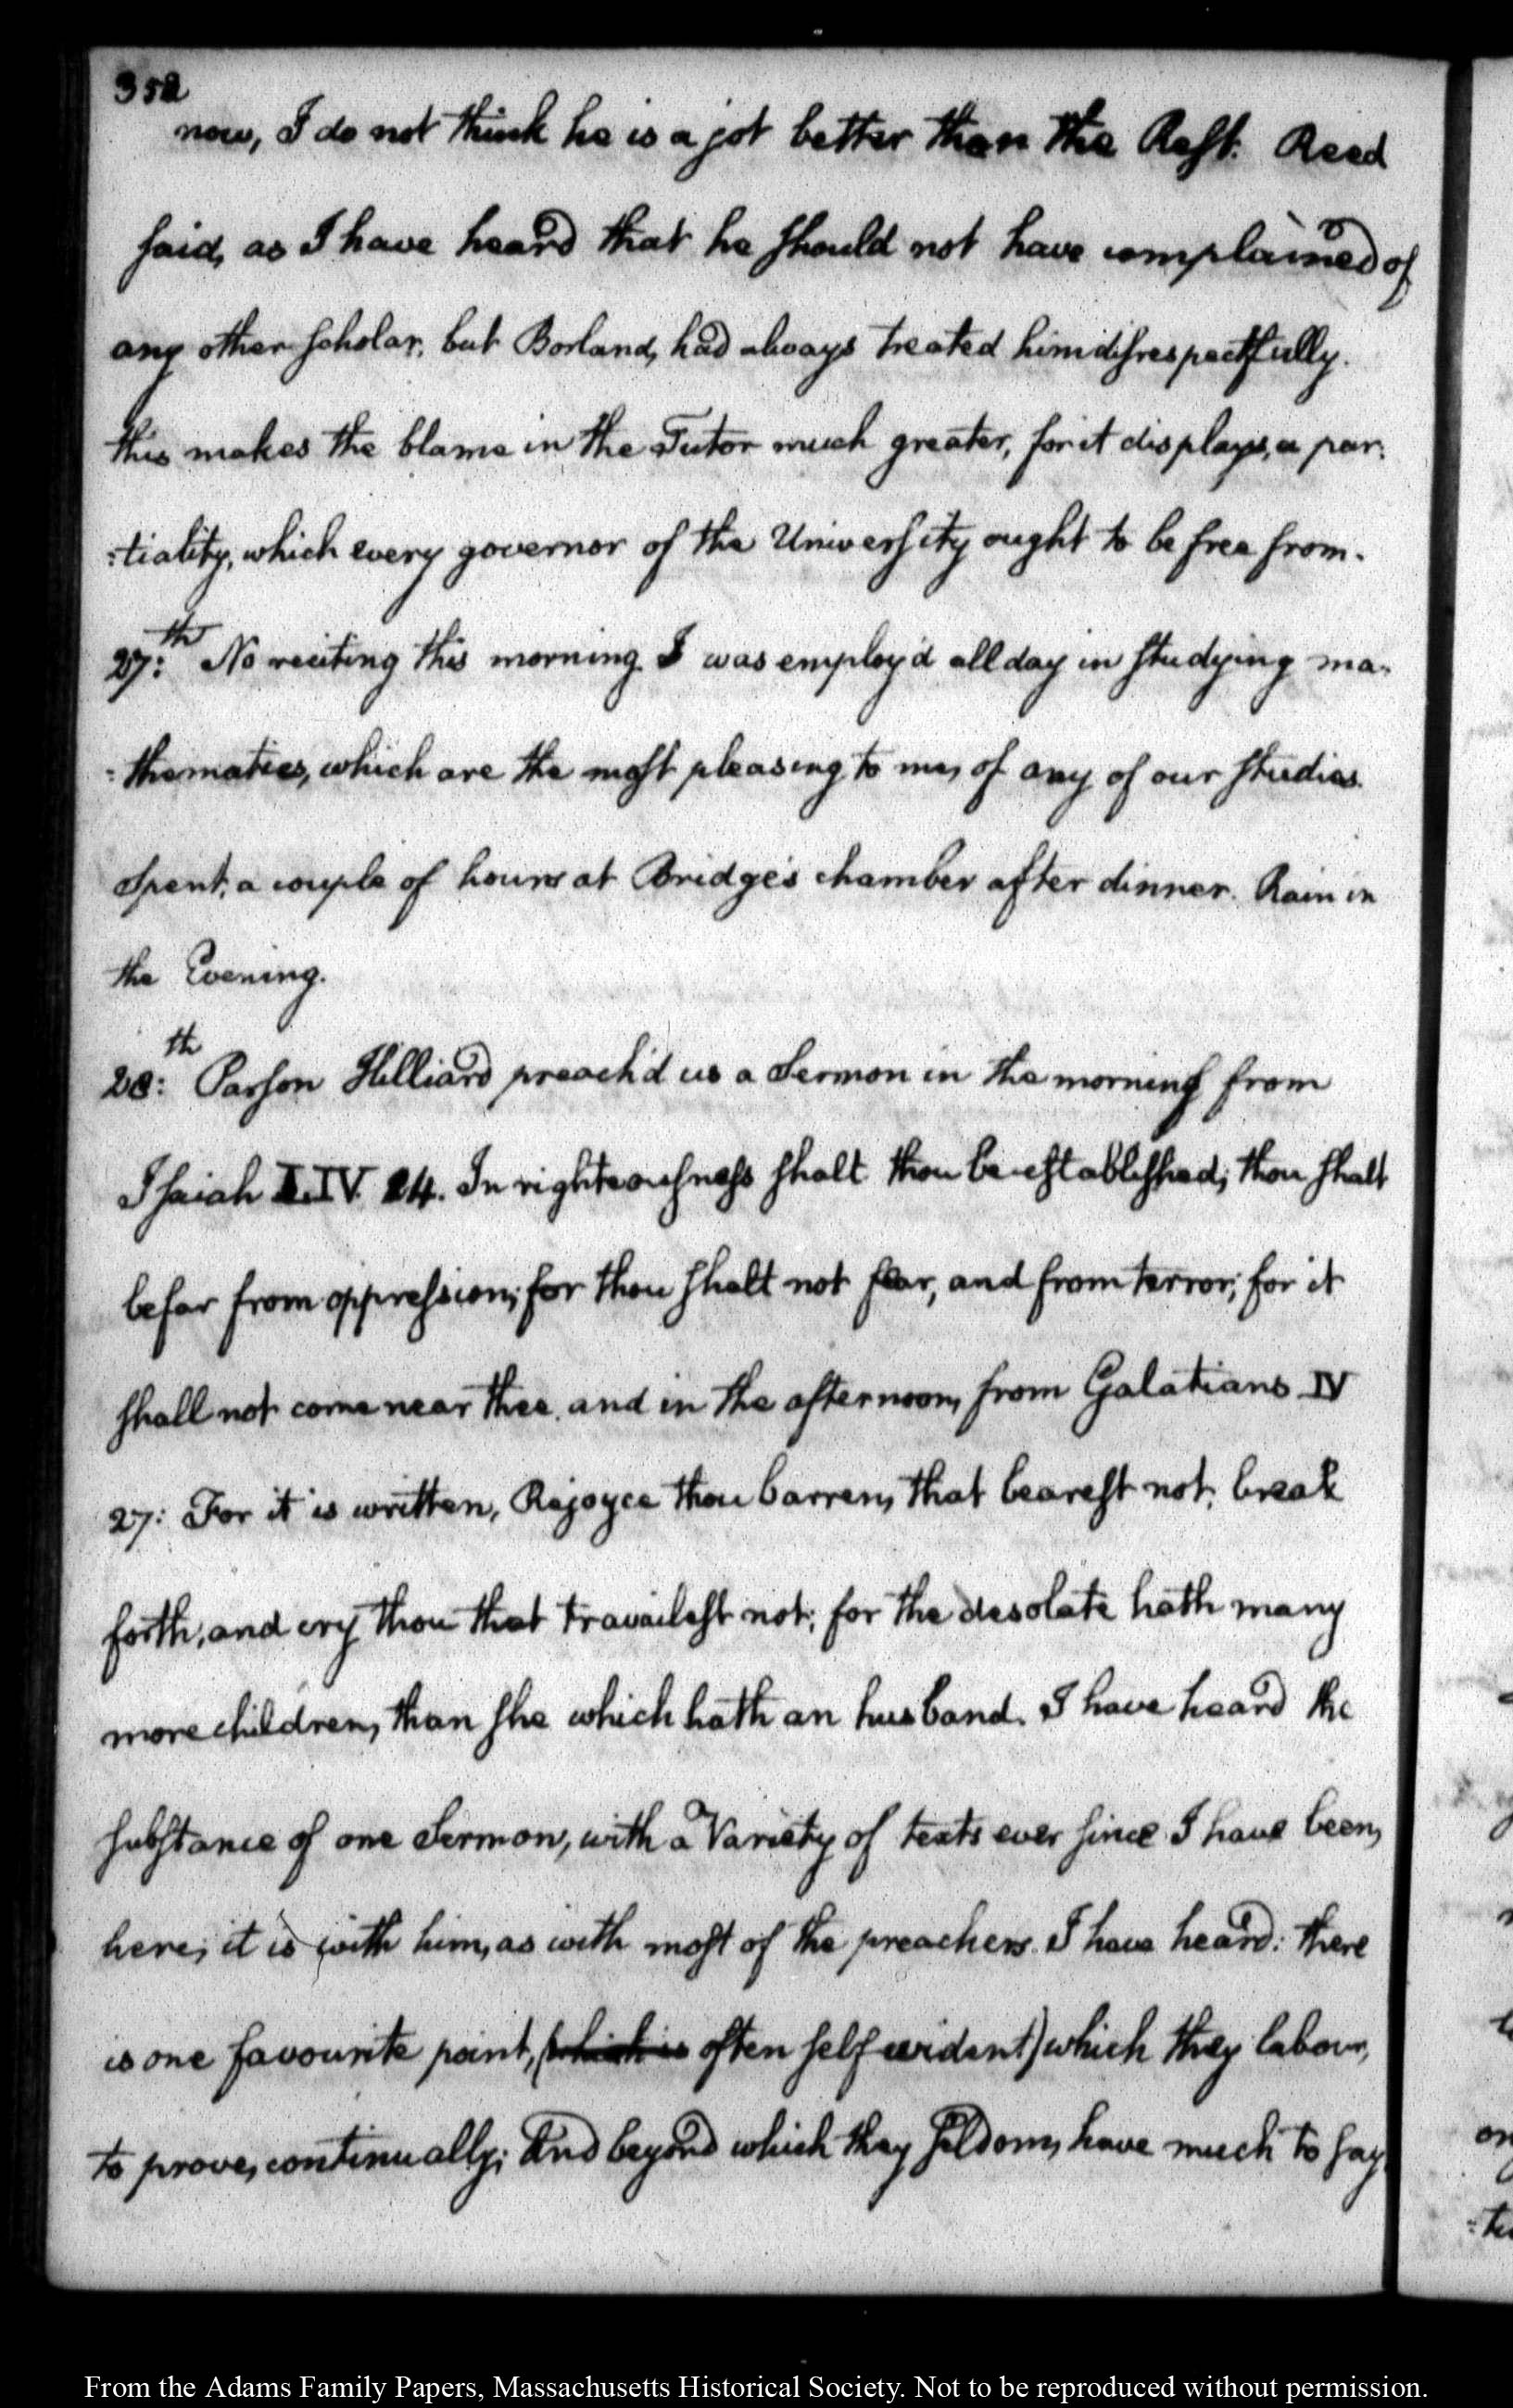 352
now, I do not think he is a jot better than the Rest. Reed
said, as I have heard that he should not have complained of
any other scholar, but Borland, had always treated him disrespectfully.
this makes the blame in the Tutor much greater, for it displays, a par-
:tiality, which every governor of the University ought to be free from.
27:th No reciting this morning. I was employ'd all day in studying ma-
:thematics, which are the most pleasing to me, of any of our studies.
Spent, a couple of hours at Bridge's chamber after dinner. Rain in
the Evening.
28:th Parson Hilliard preach'd us a Sermon in the morning from
Isaiah LIV. 14. In righteousness shalt thou be established; thou shalt
be far from oppression; for thou shalt not fear, and from terror; for it
shall not come near thee. and in the afternoon, from Galatians IV
27: For it is written, Rejoyce thou barren, that bearest not; break
forth, and cry, thou that travailest not; for the desolate hath many
more children, than she which hath an husband. I have heard the
substance of one Sermon, with a Variety of texts ever since I have been,
here; it is with him, as with most of the preachers I have heard: there
is one favourite point, (which is often self evident) which they labour,
to prove, continually; And beyond which they seldom, have much to say.
From the Adams Family Papers, Massachusetts Historical Society. Not to be reproduced without permission.